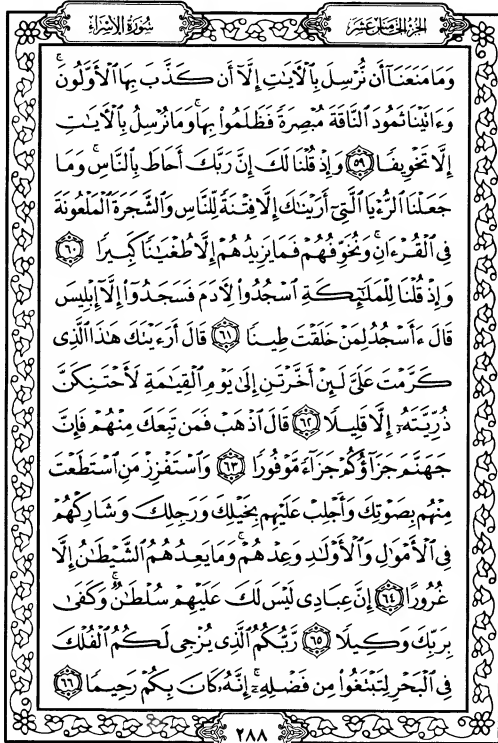 سُورَةُ الإِسْرَاءِ
الجُزْءُ الخَامِسَ عَشَرَ
وَمَا مَنَعَنَآ أَن نُّرْسِلَ بِٱلْأَيَـٰتِ إِلَّآ أَن كَذَّبَ بِهَا ٱلْأَوَّلُونَۚ
وَءَاتَيْنَا ثَمُودَ ٱلنَّاقَةَ مُبْصِرَةً فَظَلَمُوا۟ بِهَاۚ وَمَا نُرْسِلُ بِٱلْأَيَـٰتِ
إِلَّا تَخْوِيفًا ٥٩ وَإِذْ قُلْنَا لَكَ إِنَّ رَبَّكَ أَحَاطَ بِٱلنَّاسِۚ وَمَا
جَعَلْنَا ٱلرُّءْيَا ٱلَّتِىٓ أَرَيْنَـٰكَ إِلَّا فِتْنَةً لِّلنَّاسِ وَٱلشَّجَرَةَ ٱلْمَلْعُونَةَ
فِى ٱلْقُرْءَانِۚ وَنُخَوِّفُهُمْ فَمَا يَزِيدُهُمْ إِلَّا طُغْيَـٰنًا كَبِيرًا ٦٠
وَإِذْ قُلْنَا لِلْمَلَـٰٓئِكَةِ ٱسْجُدُوا۟ لِأَدَمَ فَسَجَدُوٓا۟ إِلَّآ إِبْلِيسَ
قَالَ ءَأَسْجُدُ لِمَنْ خَلَقْتَ طِينًا ٦١ قَالَ أَرَءَيْتَكَ هَـٰذَا ٱلَّذِى
كَرَّمْتَ عَلَىَّ لَئِنْ أَخَّرْتَنِ إِلَىٰ يَوْمِ ٱلْقِيَـٰمَةِ لَأَحْتَنِكَنَّ
ذُرِّيَّتَهُۥٓ إِلَّا قَلِيلًا ٦٢ قَالَ ٱذْهَبْ فَمَن تَبِعَكَ مِنْهُمْ فَإِنَّ
جَهَنَّمَ جَزَآؤُكُمْ جَزَآءً مَّوْفُورًا ٦٣ وَٱسْتَفْزِزْ مَنِ ٱسْتَطَعْتَ
مِنْهُم بِصَوْتِكَ وَأَجْلِبْ عَلَيْهِم بِخَيْلِكَ وَرَجِلِكَ وَشَارِكْهُمْ
فِى ٱلْأَمْوَٰلِ وَٱلْأَوْلَـٰدِ وَعِدْهُمْۚ وَمَا يَعِدُهُمُ ٱلشَّيْطَـٰنُ إِلَّا
غُرُورًا ٦٤ إِنَّ عِبَادِى لَيْسَ لَكَ عَلَيْهِمْ سُلْطَـٰنٌۚ وَكَفَىٰ
بِرَبِّكَ وَكِيلًا ٦٥ رَّبُّكُمُ ٱلَّذِى يُزْجِى لَكُمُ ٱلْفُلْكَ
فِى ٱلْبَحْرِ لِتَبْتَغُوا۟ مِن فَضْلِهِۦٓۚ إِنَّهُۥ كَانَ بِكُمْ رَحِيمًا ٦٦
٢٨٨